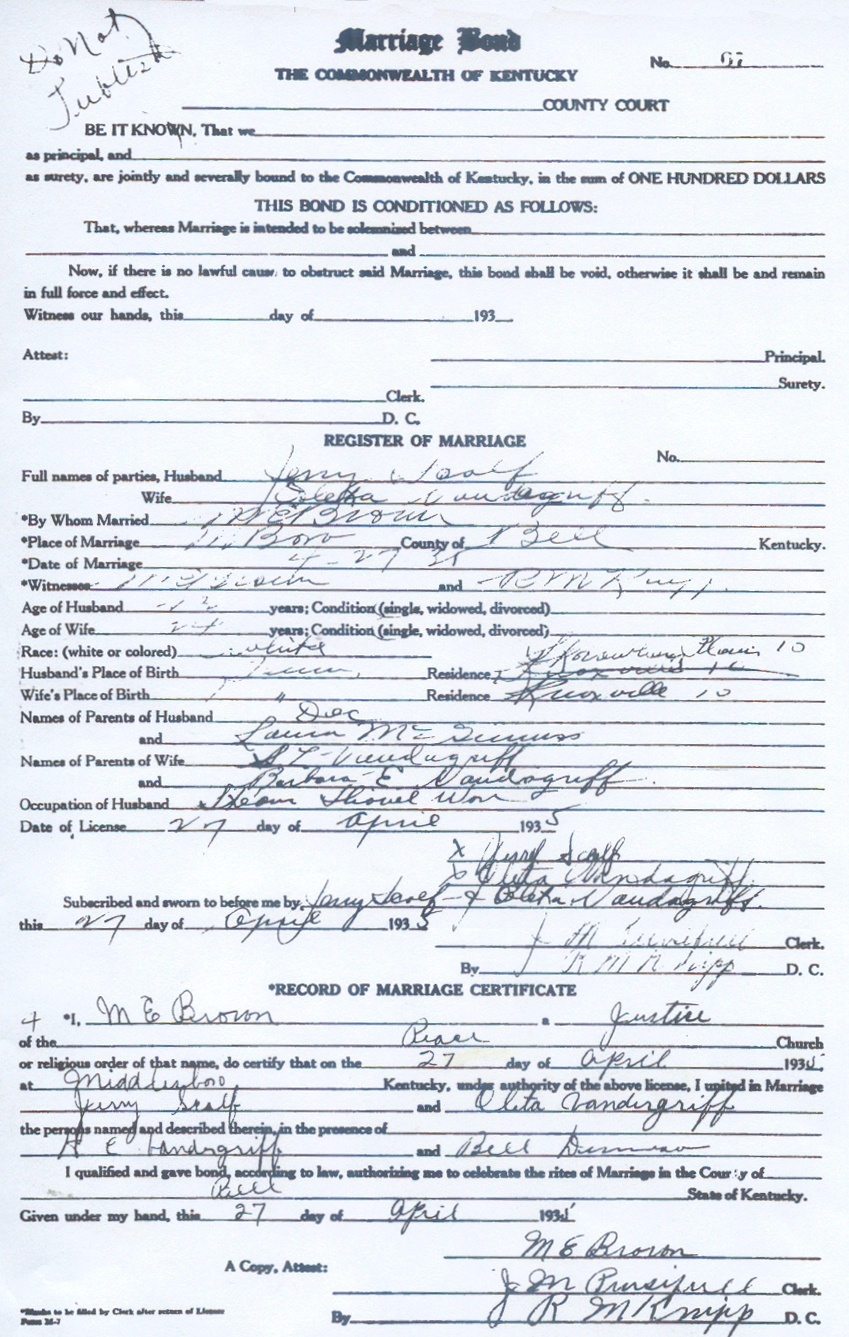 Do Not
Publish
Marriage Bond
No. 67
THE COMMONWEALTH OF KENTUCKY
COUNTY COURT
BE IT KNOWN, That we
as principal, and
as surety, are jointly and severally bound to the Commonwealth of Kentucky, in the sum of ONE HUNDRED DOLLARS
THIS BOND IS CONDITIONED AS FOLLOWS:
That, whereas Marriage is intended to be solemnized between
and
Now, if there is no lawful cause to obstruct said Marriage, this bond shall be void, otherwise it shall be and remain
in full force and effect.
Witness our hands, this day of 193
Attest: Principal.
Surety.
Clerk.
By D. C.
REGISTER OF MARRIAGE
No.
Full names of parties, Husband Jerry Scalf
Wife Oleta Vandagriff.
*By Whom Married M E Brown
*Place of Marriage M Boro County of Bell Kentucky.
*Date of Marriage 4-27 35
*Witnesses M E Brown and R M Knipp
Age of Husband years; Condition (single, widowed, divorced)
Age of Wife 24 years; Condition (single, widowed, divorced)
Race: (white or colored) white
Husband's Place of Birth Tenn. Residence
Wife's Place of Birth " Residence Knoxville 10
Names of Parents of Husband Doc
and Laura McGinniss
Names of Parents of Wife Vandagriff
and Barbara E Vandagriff.
Occupation of Husband Steam Shovel
Date of License 27 day of April 1935
X Jerry Scalf
X Oleta Vandagriff
Subscribed and sworn to before me by Jerry Scalf & Oleta Vandagriff.
this 27 day of April 1935
J M Pursifull Clerk.
By R M Knipp D. C.
*RECORD OF MARRIAGE CERTIFICATE
*I, M E Brown a Justice
of the Peace Church
or religious order of that name, do certify that on the 27 day of April 1935
at Middlesboro, Kentucky, under authority of the above license, I united in Marriage
Jerry Scalf and Oleta Vandergriff
the persons named and described therein, in the presence of
H E Vandergriff and Bell
I qualified and gave bond, according to law, authorizing me to celebrate the rites of Marriage in the County of
Bell State of Kentucky.
Given under my hand, this 27 day of April 1935
M E Brown
A Copy, Attest: J M Pursifull Clerk.
*Blanks to be filled by Clerk after return of License
Form M-7
By R M Knipp D. C.